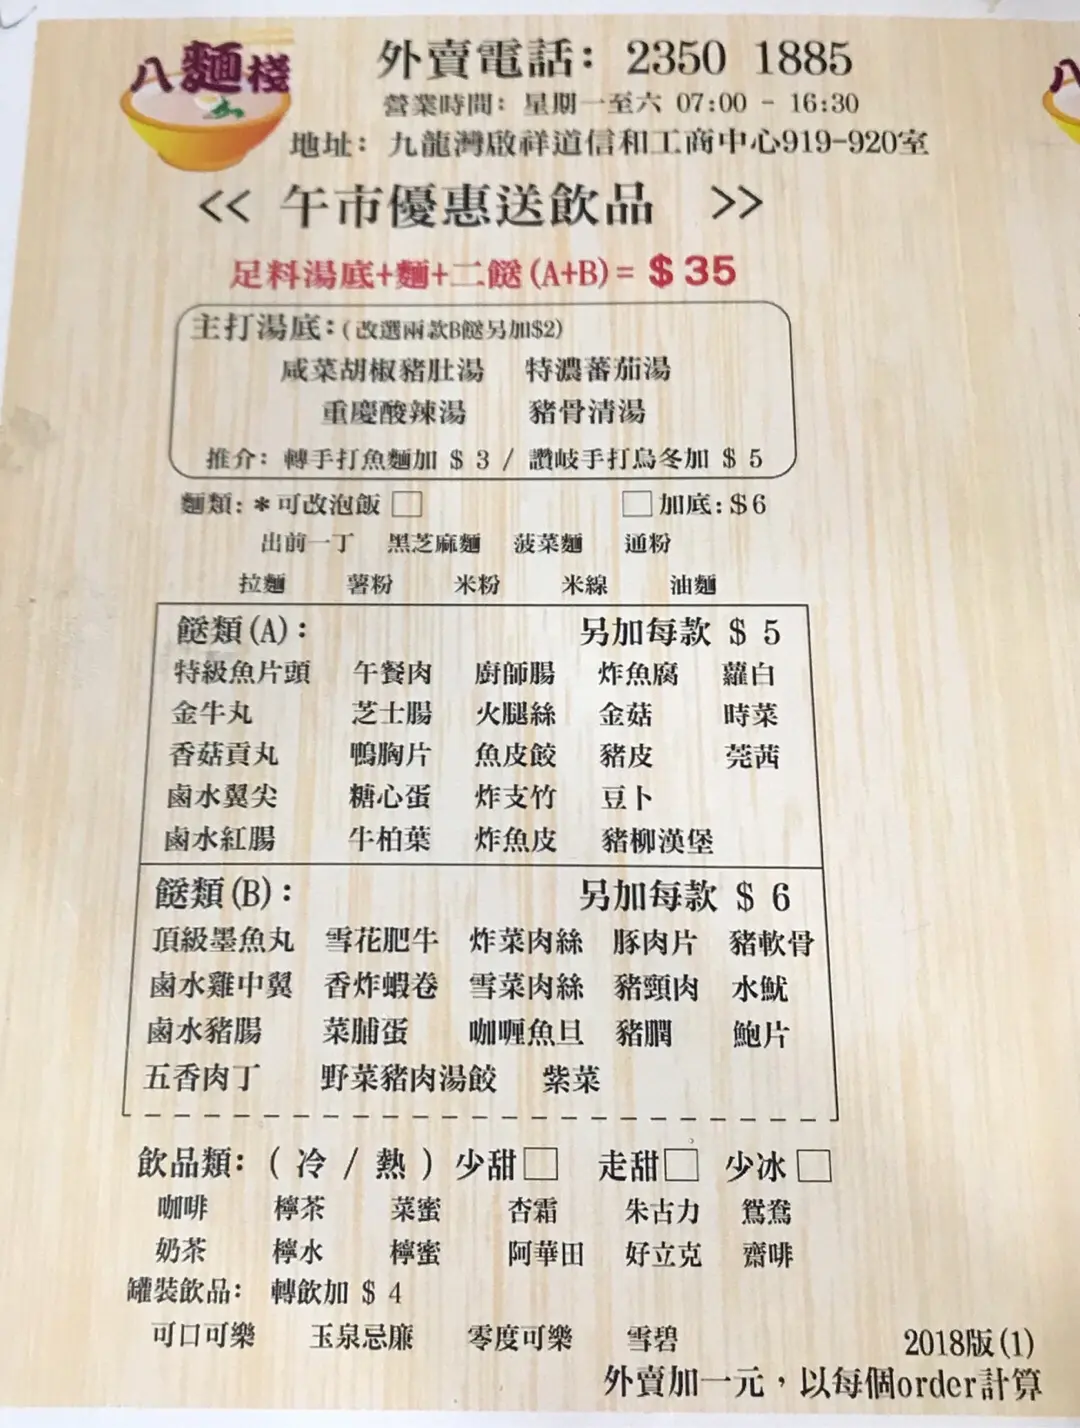 八麵棧
外賣電話：2350 1885
營業時間：星期一至六 07:00 - 16:30
地址：九龍灣啟祥道信和工商中心919-920室
<< 午市優惠送飲品 >>
足料湯底+麵+二餸(A+B)= $35
主打湯底：(改選兩款B餸另加$2)
咸菜胡椒豬肚湯 特濃蕃茄湯
重慶酸辣湯 豬骨清湯
推介：轉手打魚麵加 $ 3 / 讚岐手打烏冬加 $ 5
麵類：*可改泡飯 □ □加底：$6
出前一丁 黑芝麻麵 菠菜麵 通粉
拉麵 薯粉 米粉 米線 油麵
餸類(A)： 另加每款 $ 5
特級魚片頭 午餐肉 廚師腸 炸魚腐 蘿白
金牛丸 芝士腸 火腿絲 金菇 時菜
香菇貢丸 鴨胸片 魚皮餃 豬皮 莞茜
鹵水翼尖 糖心蛋 炸支竹 豆卜
鹵水紅腸 牛柏葉 炸魚皮 豬柳漢堡
餸類(B)： 另加每款 $ 6
頂級墨魚丸 雪花肥牛 炸菜肉絲 豚肉片 豬軟骨
鹵水雞中翼 香炸蝦卷 雪菜肉絲 豬頸肉 水魷
鹵水豬腸 菜脯蛋 咖喱魚旦 豬膶 鮑片
五香肉丁 野菜豬肉湯餃 紫菜
飲品類：( 冷 / 熱 ) 少甜□ 走甜□ 少冰□
咖啡 檸茶 菜蜜 杏霜 朱古力 鴛鴦
奶茶 檸水 檸蜜 阿華田 好立克 齋啡
罐裝飲品： 轉飲加 $ 4
可口可樂 玉泉忌廉 零度可樂 雪碧
2018版(1)
外賣加一元，以每個order計算